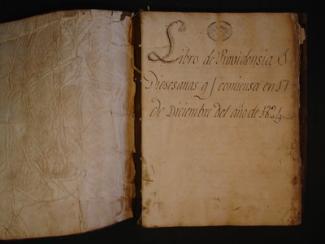 Libro de Providensia S
Diosesanas q comiensa en 17
de Diciembre del año de 1824